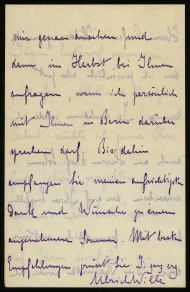 mir genau ansehen und
dann im Herbst bei Ihnen
anfragen, wann ich persönlich
mit Ihnen in Bern darüber
sprechen darf. Bis dahin
empfangen Sie meinen aufrichtigsten
Dank und Wünsche zu einem
angenehmen Sommer. Mit besten
Empfehlungen grüsst Sie Ihr
Ulrich Wille